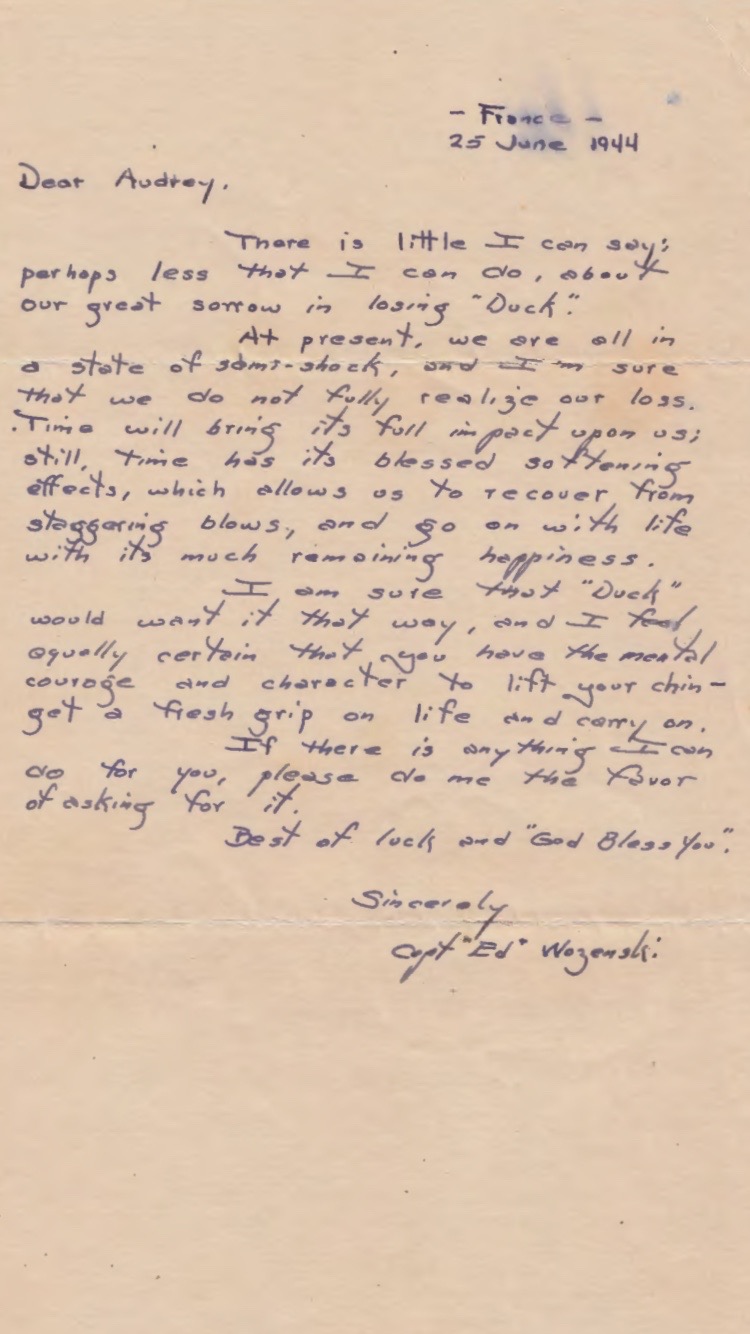 - France -
25 June 1944
Dear Audrey,
There is little I can say;
perhaps less that I can do, about
our great sorrow in losing "Duck".
At present, we are all in
a state of semi-shock, and I'm sure
that we do not fully realize our loss.
Time will bring its full impact upon us;
still, time has its blessed softening
effects, which allows us to recover from
staggering blows, and go on with life
with its much remaining happiness.
I am sure that "Duck"
would want it that way, and I feel
equally certain that you have the mental
courage and character to lift your chin -
get a fresh grip on life and carry on.
If there is anything I can
do for you, please do me the favor
of asking for it.
Best of luck and "God Bless You".
Sincerely
Capt "Ed" Wozenski